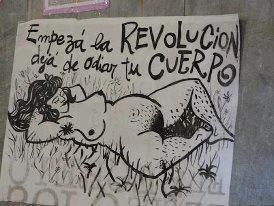 Empezá la REVOLUCION
dejá de odiar tu CUERPO